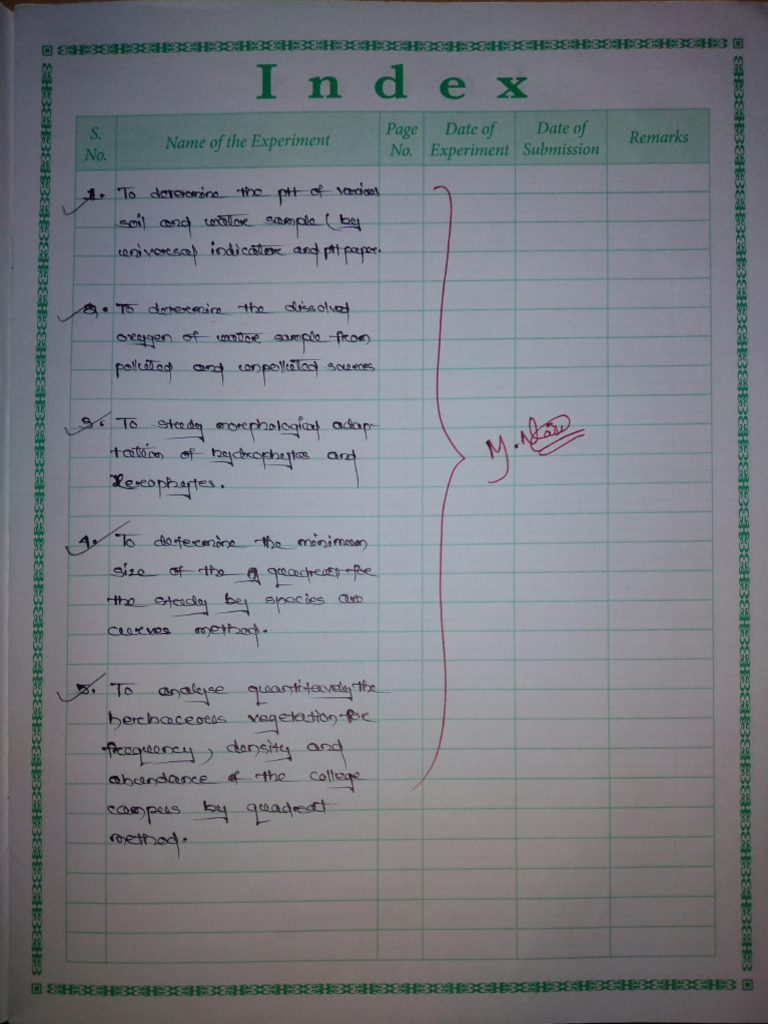 Index
S. No. Name of the Experiment Page No. Date of Experiment Date of Submission Remarks
1. To determine the pH of various
soil and water sample (by
universal indicator and pH paper.
2. To determine the dissolved
oxygen of water sample from
polluted and unpolluted sources
3. To study morphological adap-
tation of hydrophytes and
Xerophytes.
4. To determine the minimum
size of the quadrat for
the study by species are
curves method.
5. To analyse quantitevely the
herbaceous vegetation for
frequency, density and
abundance of the college
campus by quadrat
method.